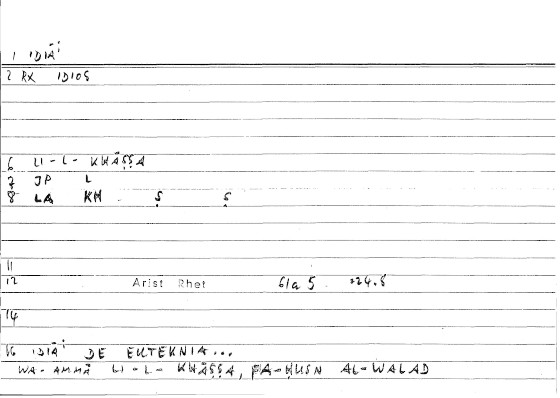 1 IDIĀͅ
2 RX IDIOS
6 LI-L-KHĀṢṢA
7 JP L
8 LA KH Ṣ Ṣ
11
12 Arist Rhet 61a 5 =24.8
14
16 IDIĀͅ DE EUTEKNIA...
WA-AMMĀ LI-L-KHĀṢṢA, FA-ḤUSN AL-WALAD